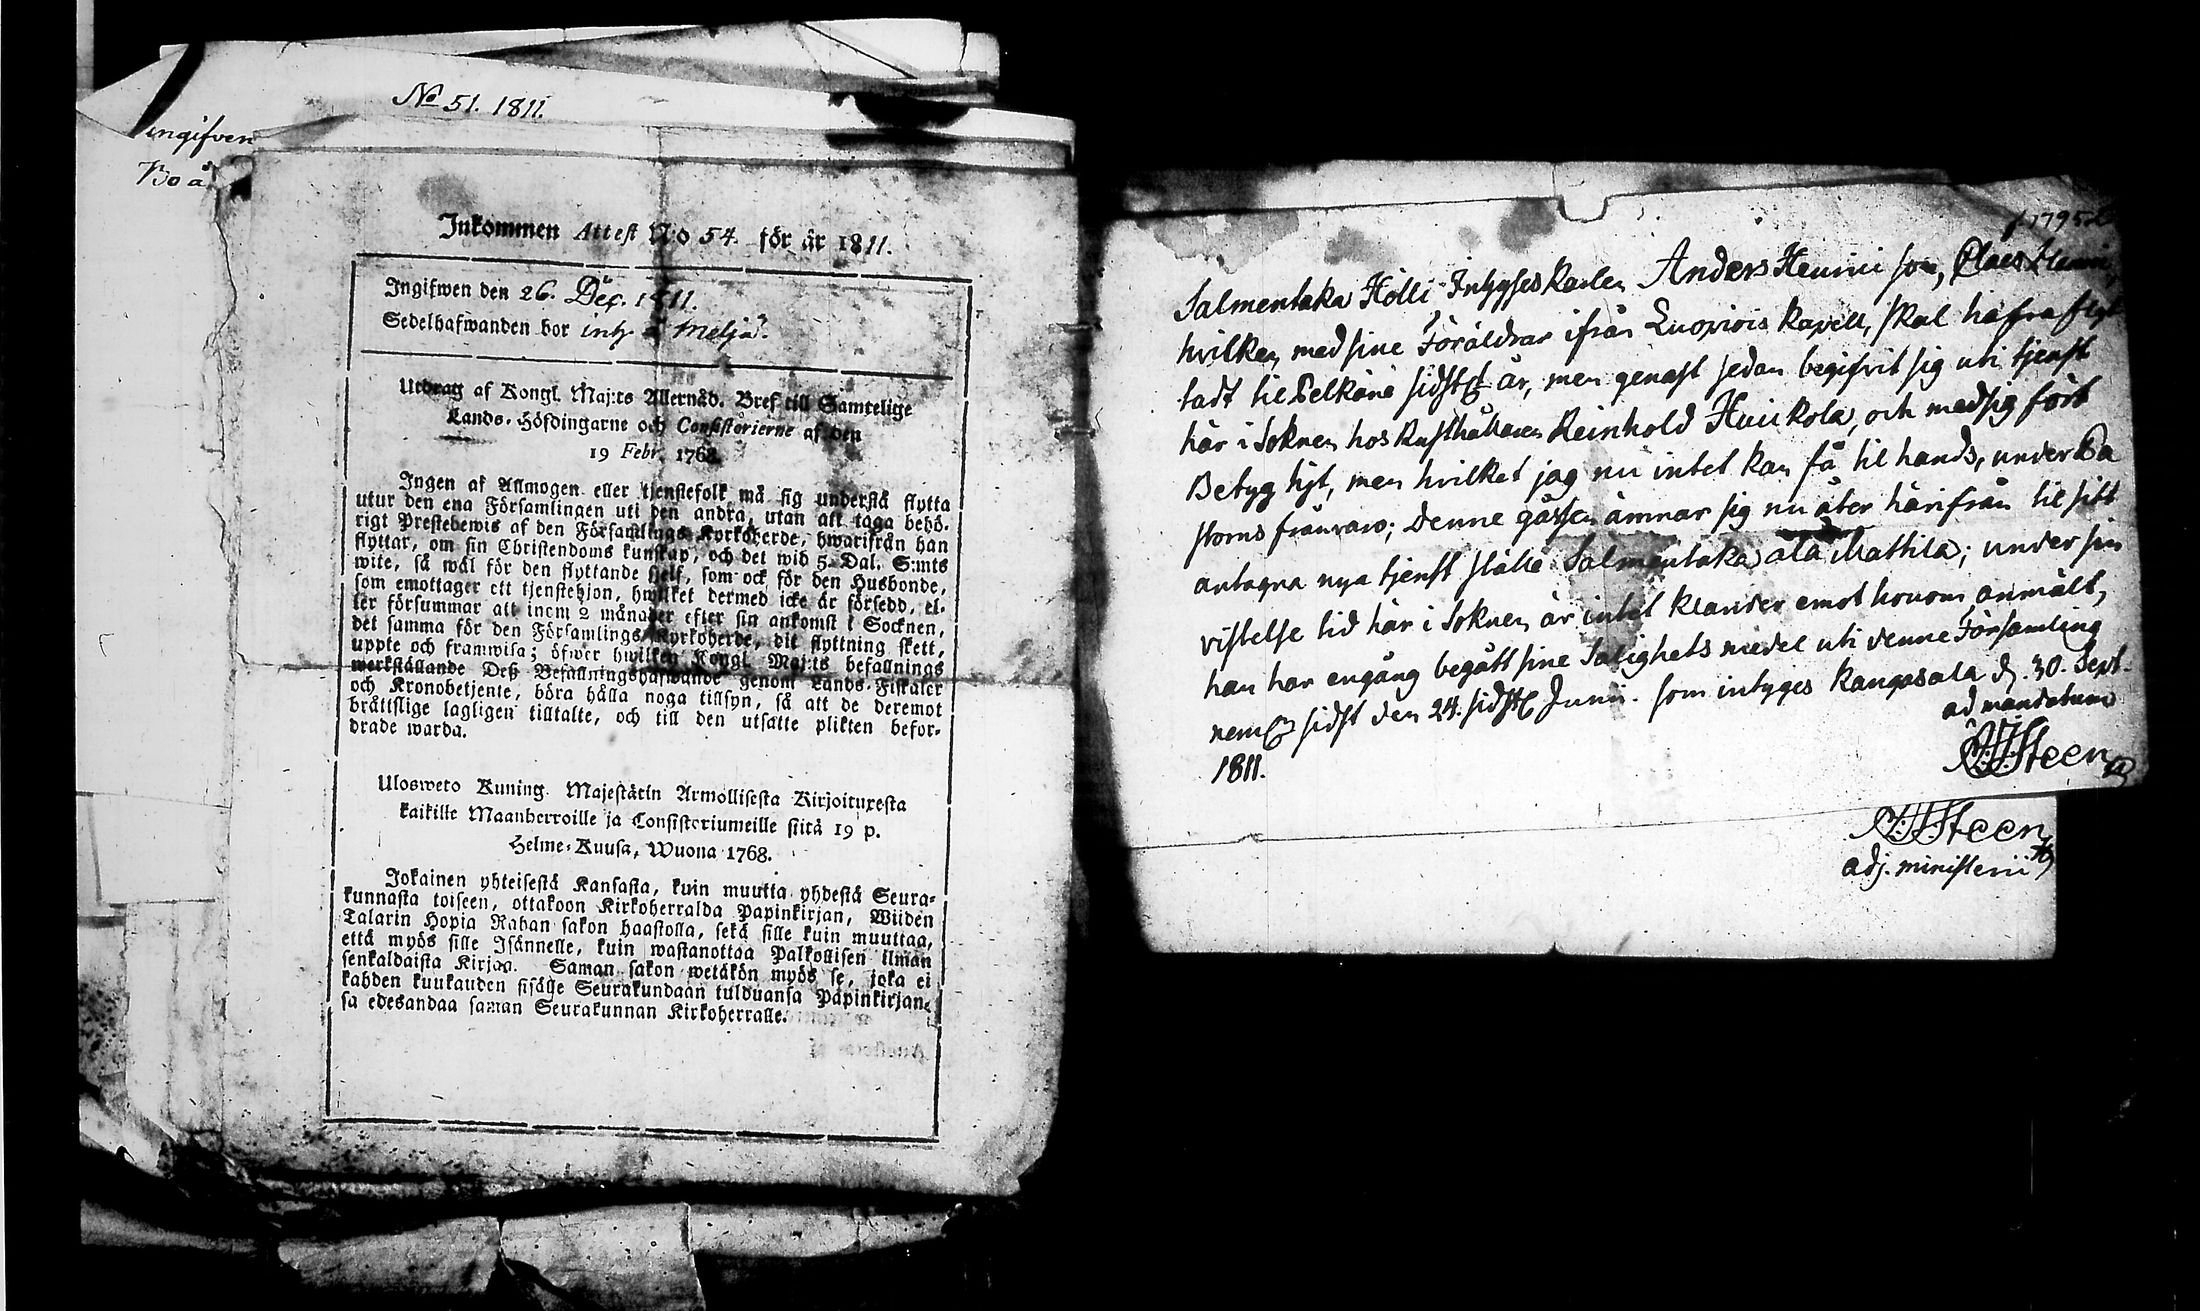 No 51. 1811.
ingifven
Bo å
Inkommen Attest N:o 54. för år 1811.
Ingifwen den 26. Dec. 1811.
Sedelhafwanden bor inh. å Meljä.
Utdrag af Kongl. Maj:ts Allernåd. Bref till Samtelige
Lands-Höfdingarne och Consistorierne af den
19 Febr. 1768.
Ingen af Allmogen eller tjenstefolk må sig understå flytta
utur den ena Församlingen uti den andra, utan att taga behö-
rigt Prestebewis af den Församlings Kyrkoherde, hwarifrån han
flyttar, om sin Christendoms kunskap, och det wid 5 Dal. S:mts
wite, så wäl för den flyttande sjelf, som ock för den Husbonde,
som emottager ett tjenstehjon, hwilket dermed icke är försedd, el-
ler försummar att inom 2 månader efter sin ankomst i Socknen,
det samma för den Församlings Kyrkoherde, dit flyttning skett,
uppte och framwisa; öfwer hwilken Kongl. Maj:ts befallnings
werkställande Deß Befallningshafwande genom Lands-Fiskaler
och Kronobetjente, böra hålla noga tillsyn, så att de deremot
bråttslige lagligen tilltalte, och till den utsatte plikten befor-
drade warda.
Ulosweto Kuning. Majestätin Armollisesta Kirjoituxesta
kaikille Maanherroille ja Consistoriumeille siitä 19 p.
Helme-Kuusa, Wuona 1768.
Jokainen yhteisestä Kansasta, kuin muutta yhdestä Seura-
kunnasta toiseen, ottakoon Kirkoherralda Papinkirjan, Wiiden
Talarin Hopia Rahan sakon haastolla, sekä sille kuin muuttaa,
että myös sille Isännelle, kuin wastanottaa Palkollisen ilman
senkaldaista Kirjaa. Saman sakon wetäkön myös se, joka ei
kahden kuukauden sisälle Seurakundaan tulduansa Papinkirjan-
sa edesandaa saman Seurakunnan Kirkoherralle.
f. 1795
Salmentaka Hölli Inhyseskarlen Anders Henric son, Claes Henric,
hvilken med sine Föräldrar ifrån Luopiois Kapell, skal hafva flyt
tadt til Pelkäne sidste år, men genast sedan begifvit sig uti tjenst
här i Soknen hos Rusthållaren Reinhold Huickola, och med sig fört
Betyg hit, men hvilket jag nu intet kan få til hands, under Pa
storns frånvaro; Denne gåssen ämnar sig nu åter härifrån til sitt
antagna nya tjenst ställe Salmentaka ala Mattila; under sin
vistelse tid här i Soknen är intet klander emot honom anmält,
han har engång begått sine Salighets medel uti denne Församling
neml. sidst den 24. sidstl. Junii. Som intyges Kangasala d. 30. Sept.
1811.
ad mandatum
Steen
Steen
adj. ministerii